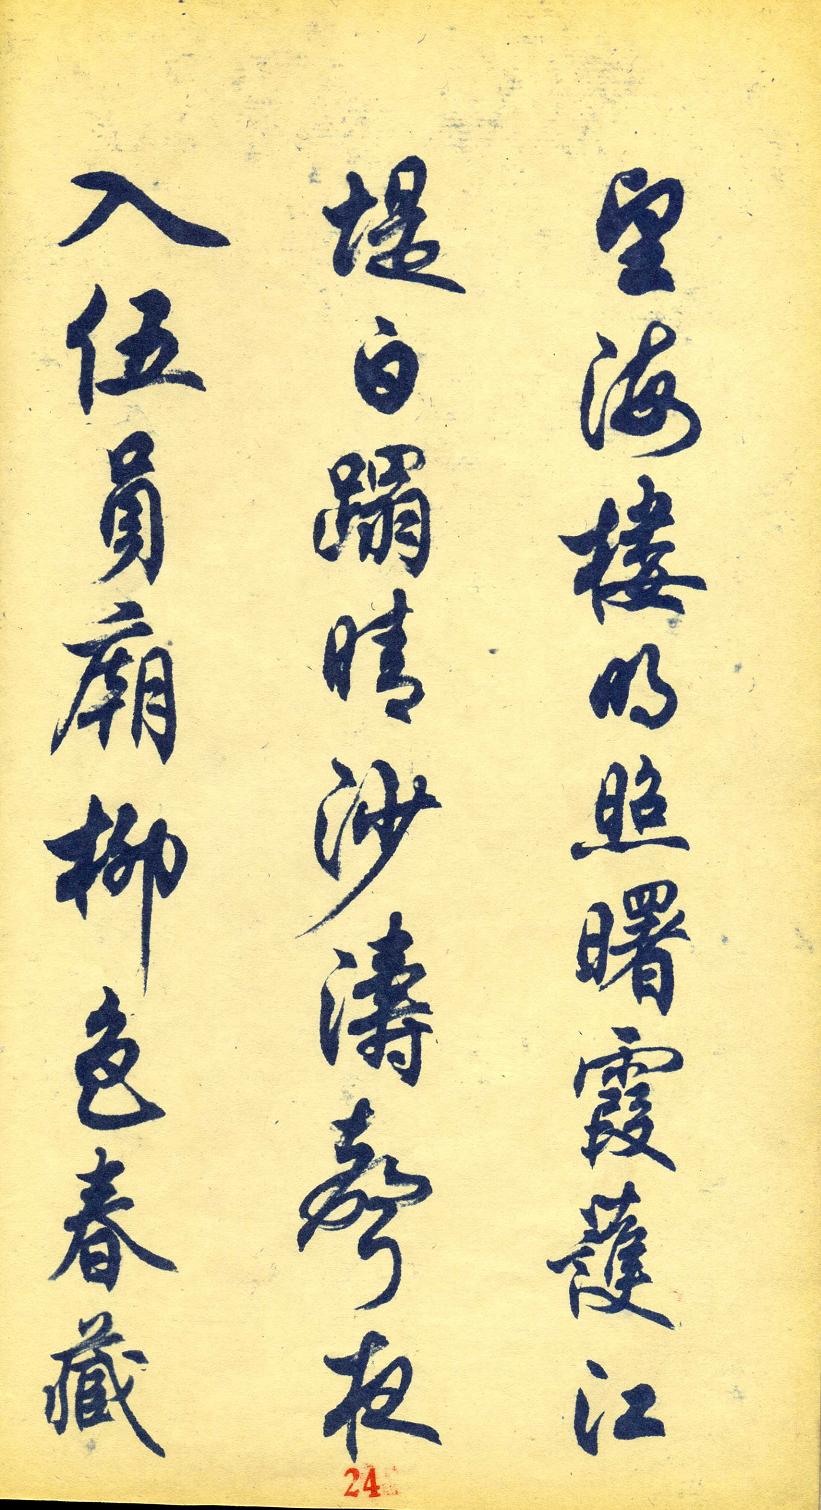 望海樓明照曙霞護江
堤白蹋晴沙濤聲夜
入伍員廟柳色春藏
24